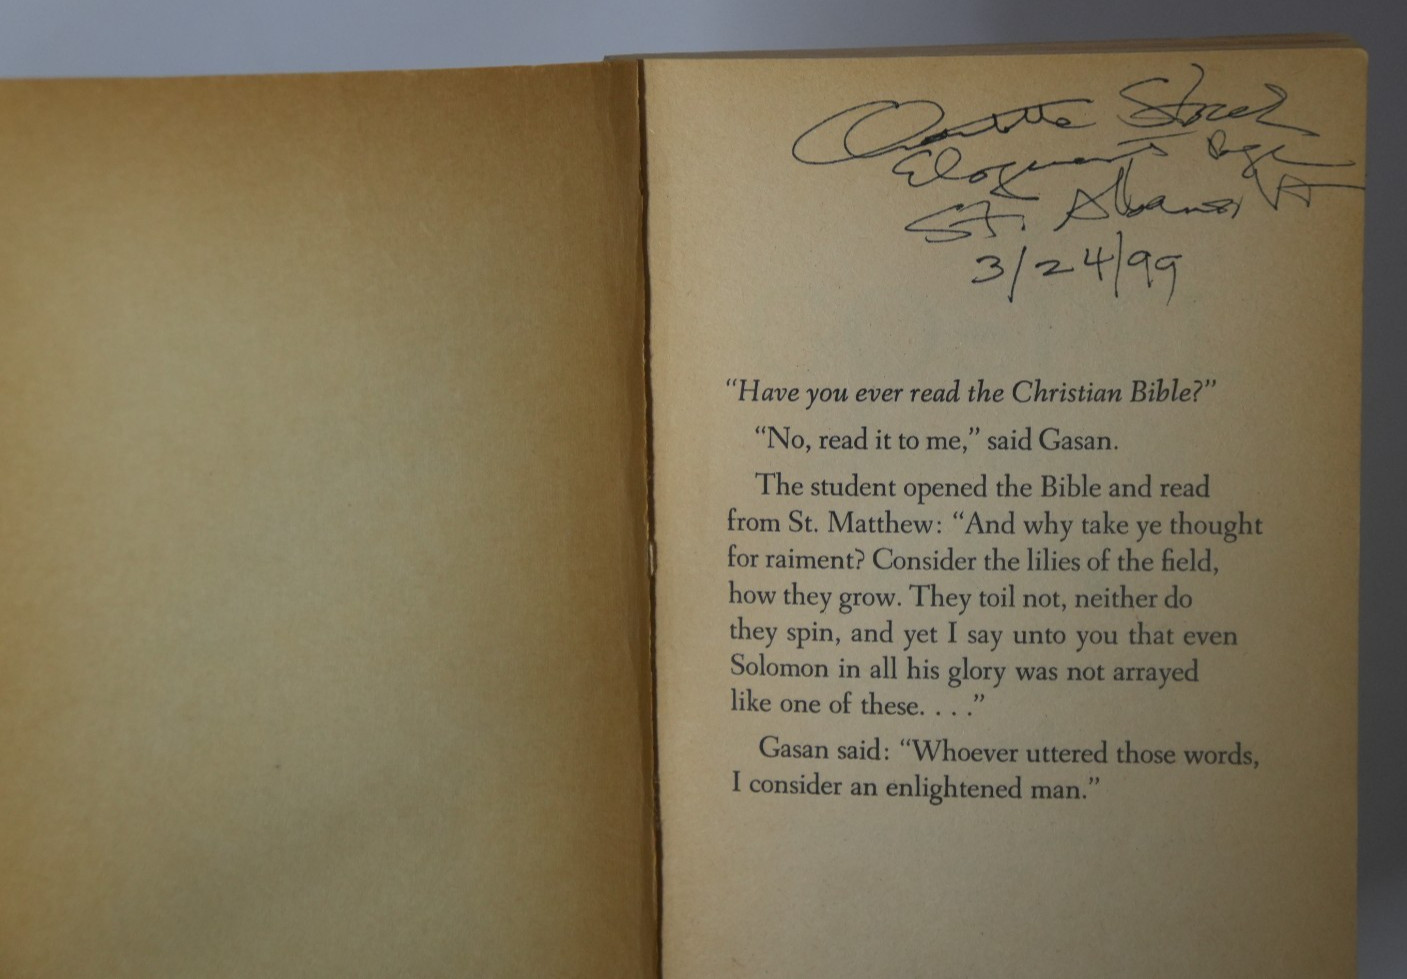 Eloquent Page
St. Albans, VT
3/24/99
“Have you ever read the Christian Bible?”
“No, read it to me,” said Gasan.
The student opened the Bible and read
from St. Matthew: “And why take ye thought
for raiment? Consider the lilies of the field,
how they grow. They toil not, neither do
they spin, and yet I say unto you that even
Solomon in all his glory was not arrayed
like one of these. . . .”
Gasan said: “Whoever uttered those words,
I consider an enlightened man.”